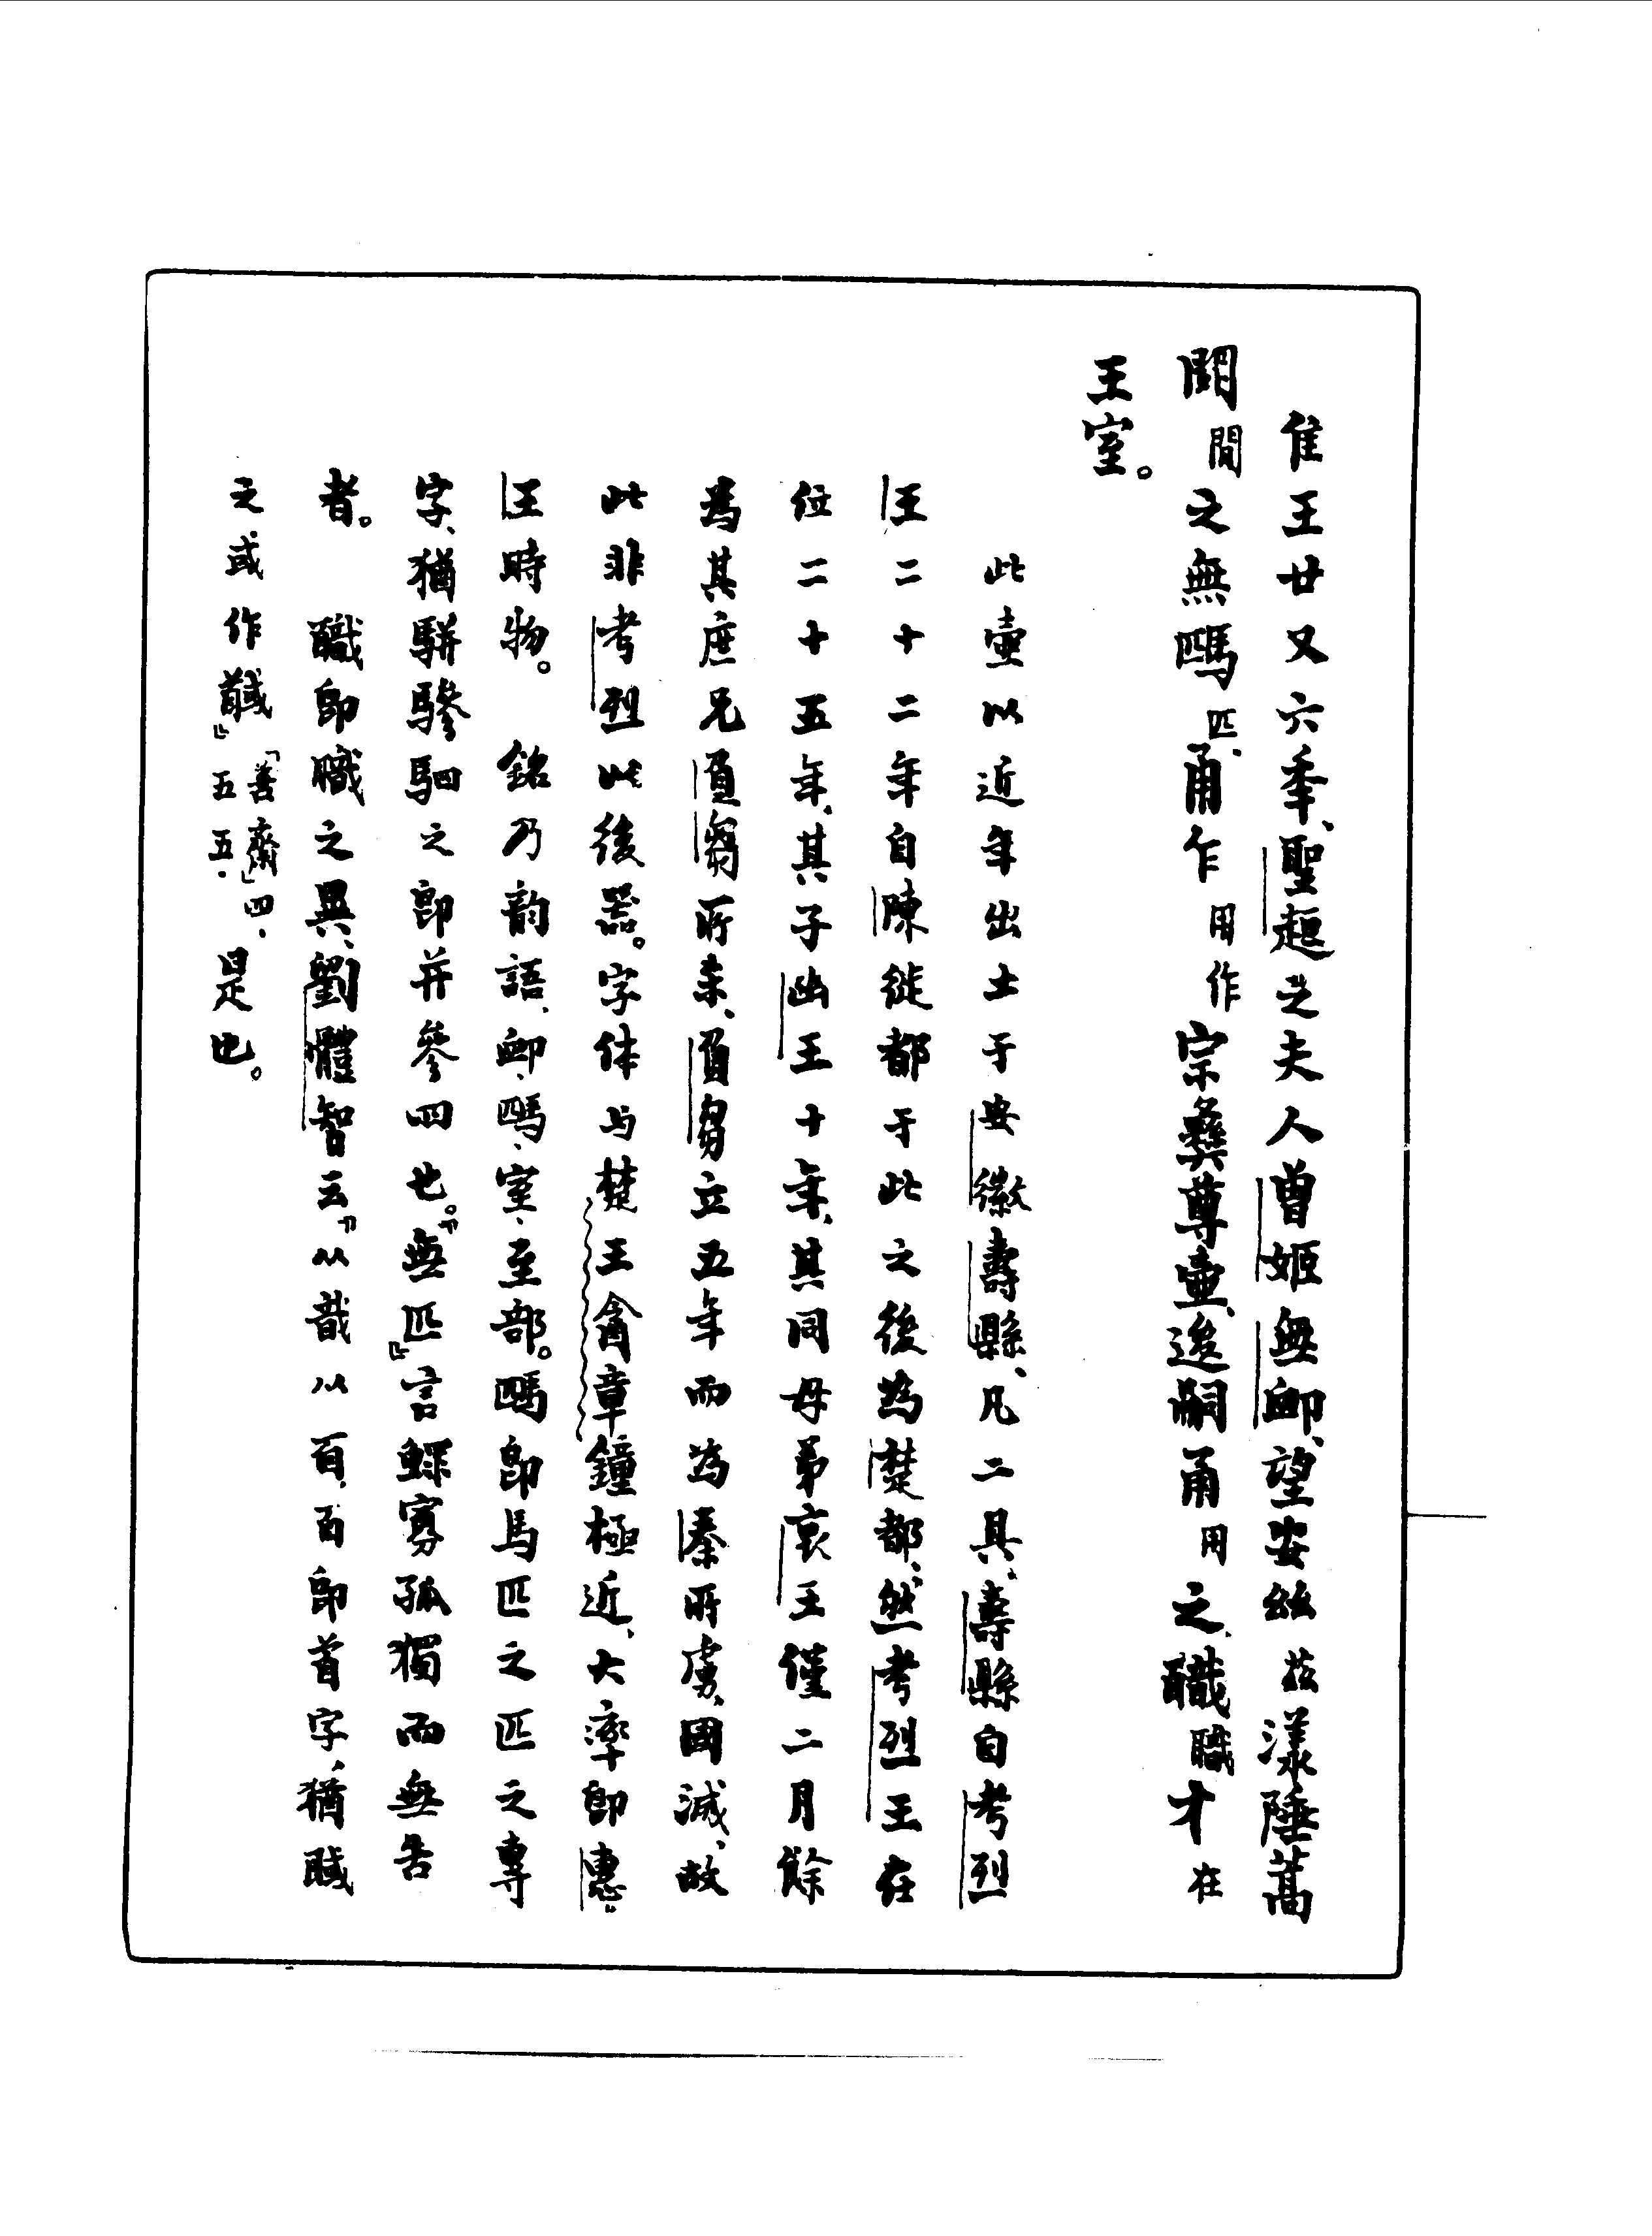 隹王廿又六年、聖趄之夫人曾姬無卹、望安茲漾陲蒿
閒間之無䮠匹、甬乍用作宗彝尊壺、逡嗣甬用之、職才在
王室。
此壺以近年出土于安徽壽縣、凡二具、壽縣自考烈
王二十二年自陳徙都于此之後為楚都、然考烈王在
位二十五年、其子幽王十年、其同母弟哀王僅二月餘
為其庶兄負芻所杀、負芻立五年而為秦所虜、國滅、故
此非考烈以後器。字体与楚王酓章鐘極近、大率即惠
王時物。銘乃韵語、卹、䮠、室、至部。䮠即馬匹之匹之專
字、猶駢驂駟之即并參四也。『無匹』言鰥寡孤獨而無告
者。職即職之異、劉體智云『从戠从𦣻、𦣻即首字、猶聝
之或作馘』「善齋」四、五五.是也。